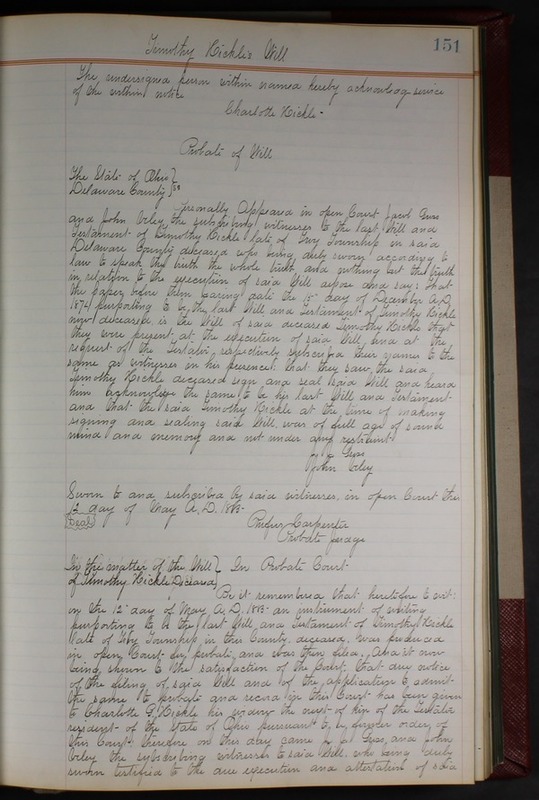 151
Timothy Hickle's Will
The undersigned person within named hereby acknowledg service
of the within notice
Charlotte Hickle-
Probate of Will
The State of Ohio }
Delaware County } ss
Personally Appeared in open Court Jacob Gross
and John Wiley the subscribing witnesses to the last Will and
Testament of Timothy Hickle late of Troy Township in said
Delaware County deceased who being duly sworn according to
law to speak the truth the whole truth and nothing but the truth
in relation to the execution of said Will depose and say: That
the paper before them bearing date the 15 day of December A.D.
1874 purporting to be the last Will and Testament of Timothy Hickle
now deceased is the Will of said deceased Timothy Hickle that
they were present at the execution of said Will and at the
request of the Testator, respectively subscribed their names to the
same as witnesses in his presence. That they saw the said
Timothy Hickle deceased sign and seal said Will and heard
him acknowledge the same to be his last Will and Testament
and that the said Timothy Hickle at the time of making
signing and sealing said Will was of full age of sound
mind and memory and not under any restraint
Gross
John Wiley
Sworn to and subscribed by said witnesses in open Court this
12 day of May A.D. 1883-
Seal
Rufus Carpenter
Probate Judge
In the matter of the Will } In Probate Court-
of Timothy Hickle Deceased }
Be it remembered that heretofore to wit:
on the 12" day of May A.D. 1883- an instrument of writing
purporting to be the last Will and Testament of Timothy Hickle
late of Troy Township in this County deceased was produced
in open Court for probate and was then filed. And it now
being shown to the satisfaction of the Court, that due notice
of the filing of said Will and of the application to admit
the same to probate and record in this Court has been given
to Charlotte Hickle his widow the next of kin of the Testator
resident of the State of Ohio pursuant to former order of
this Court therefore on this day came Gross, and John
Wiley the subscribing witnesses to said Will, who being duly
sworn testified to the due execution and attestation of said